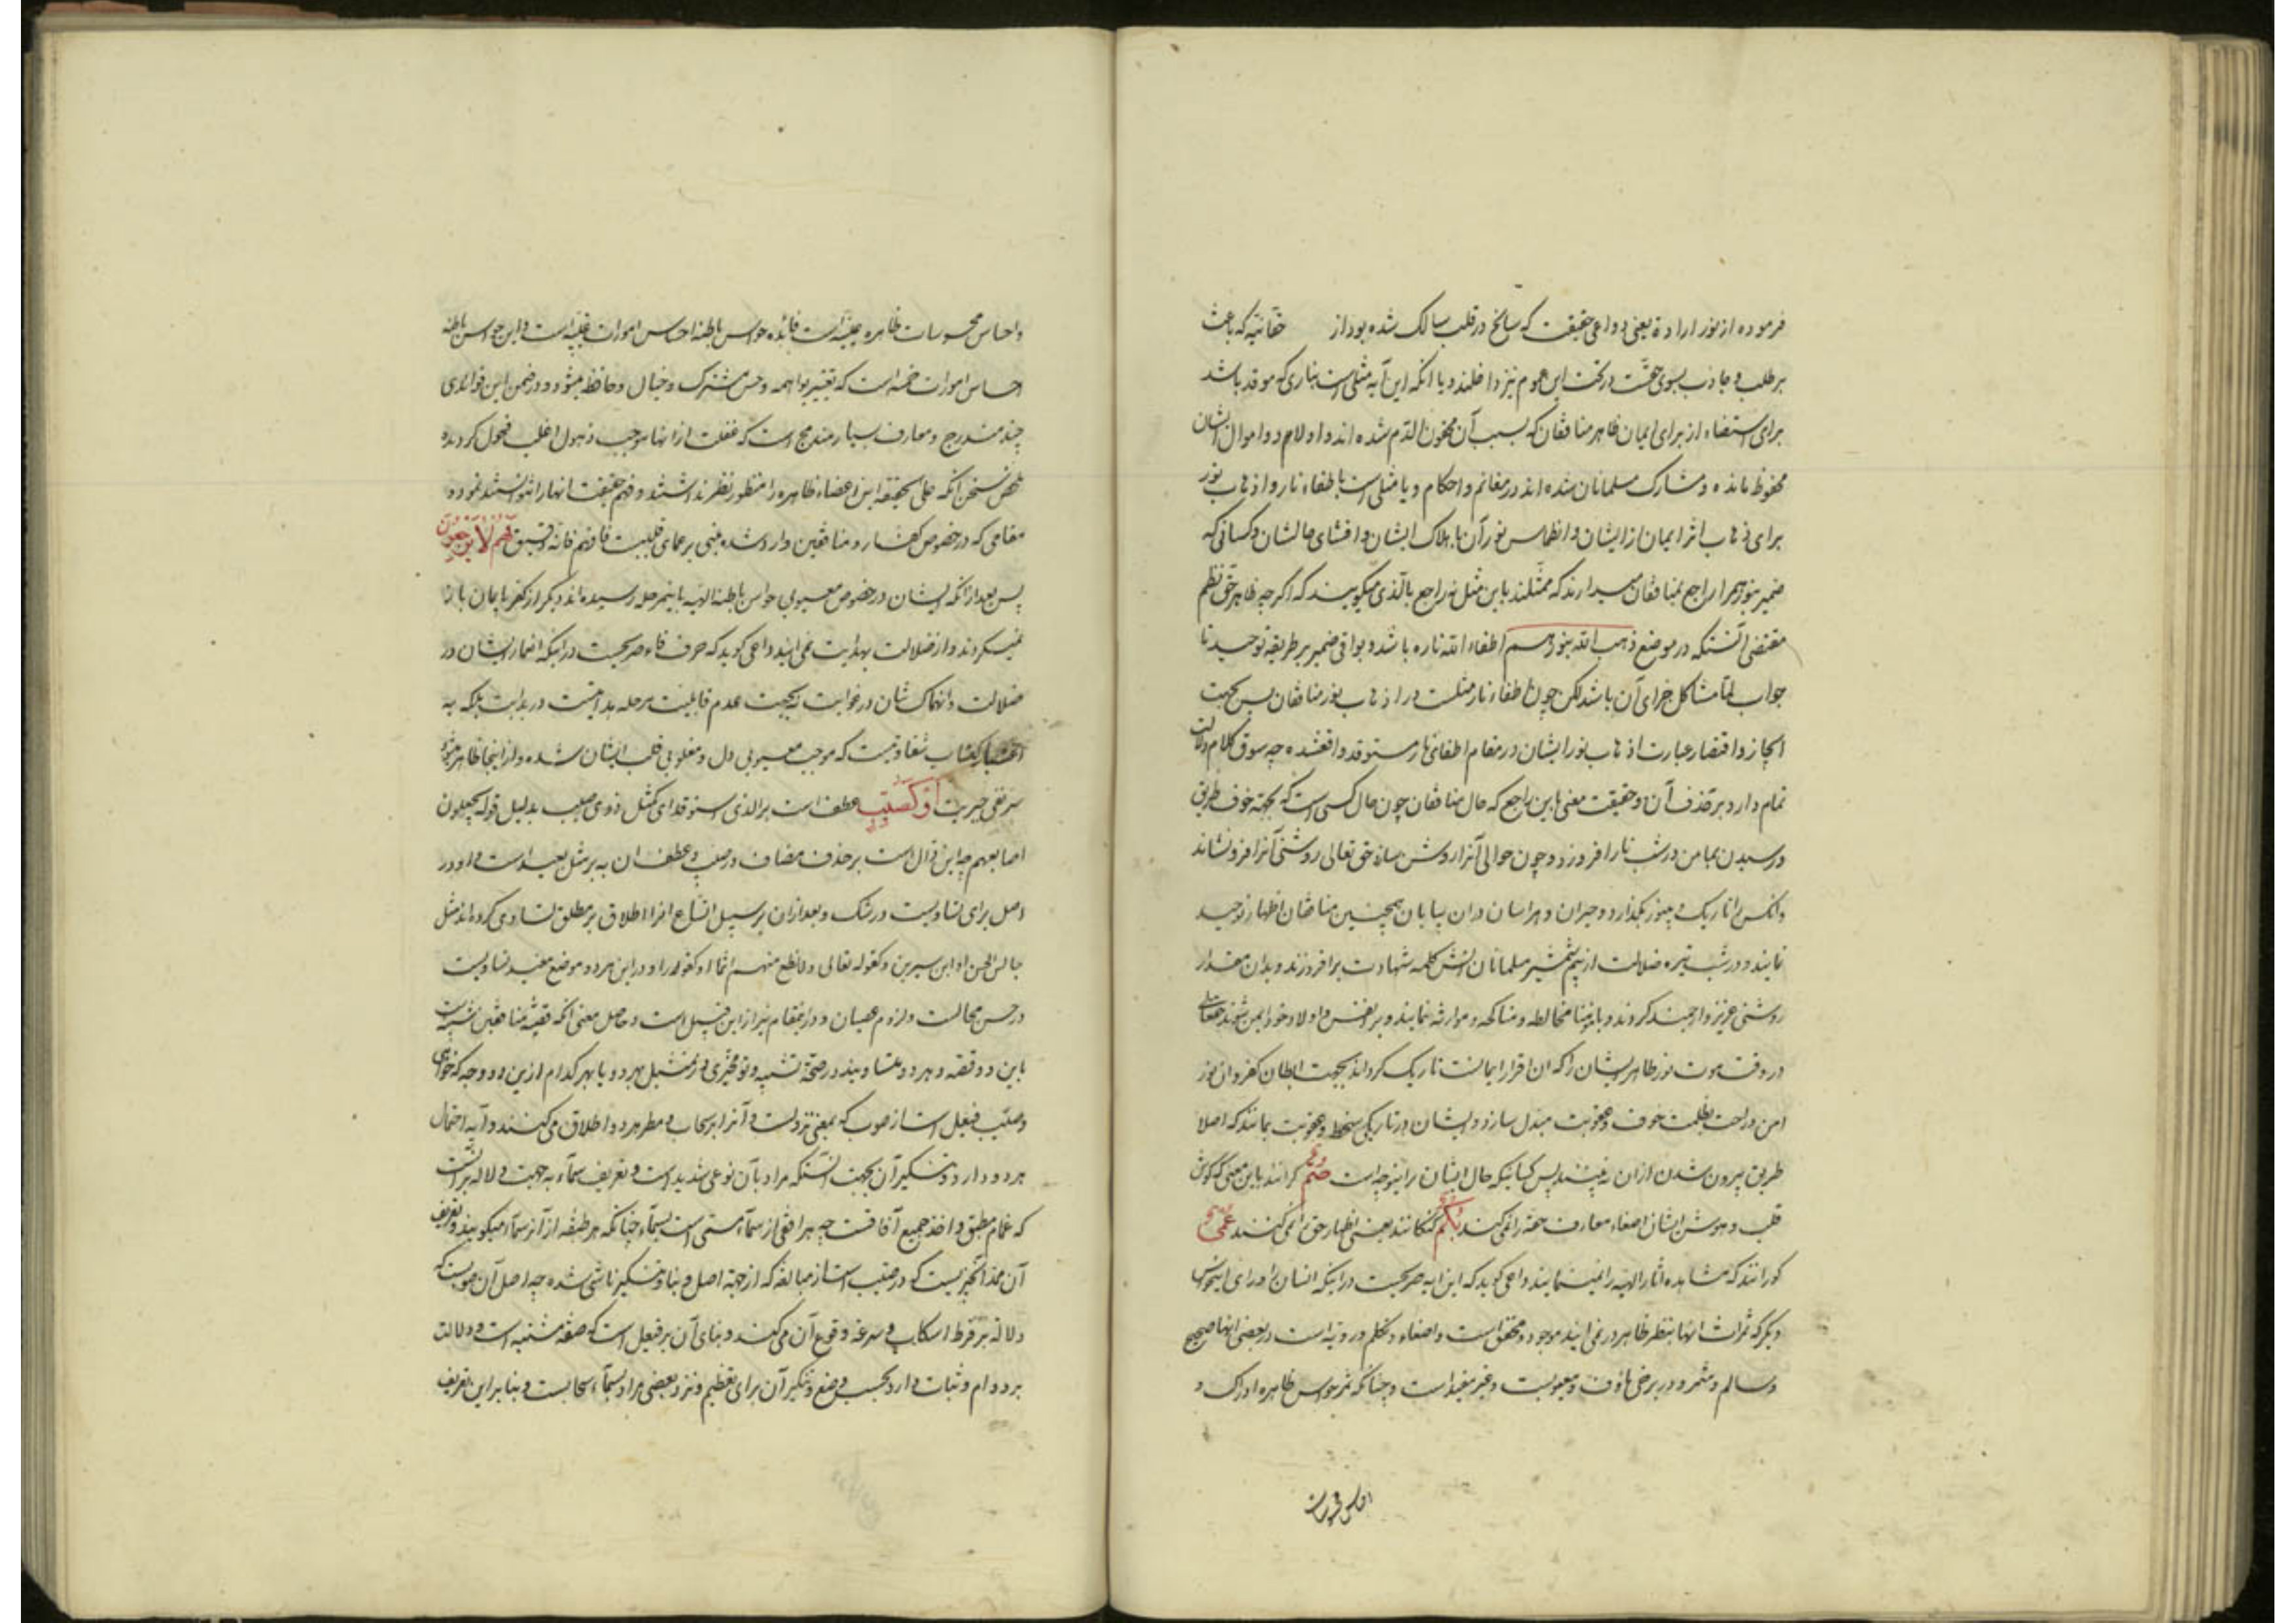 فرموده از نور ارادة یعنی دواعی حقیقت که سانح در قلب سالک شده بود از حقانیه که باعث
بر طلب و جاذب بسوی حقست در تحت این عموم نیز داخلند و یا آنکه این آیه مثلی است بناری که موقد باشد
برای استضاءه از برای ایمان ظاهر منافقان که بسبب آن محقون الدم شده اند و اولاد و اموال ایشان
محفوظ مانده و مشارک مسلمانان شده اند در مغانم و احکام و یا مثلی است باطفاء نار و اذهاب نور
برای ذهاب اثر ایمان از ایشان و انطماس نور آن باهلاک ایشان و افشای حالشان و کسانی که
ضمیر بنورهم را راجع بمنافقان میدارند که ممثلند باین مثل نه راجع بالذی میگویند که اگر چه ظاهر حق نظم
مقتضی آنستکه در موضع ذهب الله بنورهم اطفاء الله ناره باشد و بواقی ضمیر بر طریقه توحید تا
جواب لما مشاکل جزای آن باشد لکن چون اطفاء نار مثلست در اذهاب نور منافقان پس بجهت
ایجاز و اقتصار عبارت اذهاب نور ایشان در مقام اطفای نار مستوقد واقعشده چه سوق کلام دلالت
تمام دارد بر قذف آن و حقیقت معنی باین راجع که حال منافقان چون حال کسی است که بجهة خوف طریق
و رسیدن بمامن در شب نار افروزد و چون حوالی آنرا روشن سازد حق تعالی روشنی آنرا فرو نشاند
و آنکس را تاریک و بی نور بگذارد و حیران و هراسان دران بیابان همچنین منافقان اظهار توحید
نمایند و در شب تیره ضلالت از بیم شمشیر مسلمانان آتش کلمه شهادت برافروزند و بدان مقدار
روشنی عزیز و ارجمند گردند و با مؤمنان مخالطه و مناکحه و موارثه نمایند و بر نفس و اولاد خود ایمن شوند حقتعالی
در وقت موت نور ظاهر ایشان را که ان اقرار ایمانست تاریک گرداند بجهت ابطان کفر و ان نور
امن و راحت بظلمت خوف و عقوبت مبدل سازد و ایشان در تاریکی سخط و عقوبت بمانند که اصلا
طریق بیرون شدن ازان نه بینند پس کسانیکه حال ایشان را اینوجه است صم کرانند باین معنی که گوش
قلب و هوش ایشان اصغاء معارف حقه را نمی کند بکم گنگانند یعنی اظهار حق را نمی کنند عمی
کورانند که مشاهده آثار الهیه را نمینمایند داعی گوید که این ایه صریحست در اینکه انسان را ورای اینحواس
دیگر که ثمرات انها بنظر ظاهر در نمی ایند موجود و محقق است و اصغاء و تکلم و رویه است در بعضی انها صحیح
و سالم و مثمر و در برخی ماؤف و معیوبست و غیر مفید است و چنانکه ثمر حواس ظاهره ادراک و
و احساس محسوسات ظاهره عینیه است فائده حواس باطنه احساس امورات غیبیه است و این حواس باطنه
احساس امورات خمسه است که تعبیر بواهمه و حس مشترک و خیال و حافظه میشود و در ضمن این فوائدی
چند مندرج و معارف بسیار مندمج است که غفلت از انها موجب ذهول اغلب فحول گردیده
ملخص سخن آنکه علی الحقیقه این اعضاء ظاهره را منظور نظر نداشتند و فهم حقیقت انها را نتوانستند نمود و
مقامی که در خصوص کفار و منافقین وارد شده مبنی بر عمای قلبیت فافهم فانه دقیق فهم لا یرجعون
پس بعد از آنکه ایشان در خصوص معیوبی حواس باطنه الهیه باینمرحله رسیده اند دیگر از کفر بایمان باز
نمیگردند و از ضلالت بهدایت نمی ایند داعی گوید که حرف فاء صریحست در اینکه اضمار ایشان در
ضلالت و انهماکشان در غوایت نه بجهت عدم قابلیت مرحله هدایتست در بدایت بلکه به
اکتساب شقاوتست که موجب معیوبی دل و مغلوبی قلب ایشان شده و از اینجا ظاهر میشود
سر نفی جبریت او کصیب عطف است بر الذی استوقد ای کمثل ذوی صیب بدلیل قوله یجعلون
اصابعهم چه این دال است بر حذف مضاف در صیب و عطف ان به بر مثل بعید است و او در
اصل برای تساویست در شک و بعد ازان بر سبیل اتساع انرا اطلاق بر مطلق تساوی کرده اند مثل
جالس الحسن او ابن سیرین و کقوله تعالی و لا تطع منهم اثما او کفورا و او در این هر دو موضع مفید تساویست
در حسن مجالست و لزوم عصیان و در اینمقام نیز از این قبیل است و حاصل معنی آنکه قصه منافقین شبیه است
باین دو قصه و هر دو متساویند در صحة تشبیه و تو مخیری در تمثیل بهر دو یا بهر کدام از این دو وجه که خواهی
و صیب فیعل است از صوب که بمعنی نزولست و آنرا بر سحاب و مطر هر دو اطلاق می کنند و آیه احتمال
هر دو دارد و تنکیر آن بجهت آنستکه مراد بآن نوعی شدید است و تعریف سماء به جهت دلاله بر آنست
که غمام مطبق و اخذ جمیع آفاقست چه هر افقی از سماء مسمی است بسماء چنانکه هر طبقه از آنرا سماء میگویند و تعریف
آن ممد آنچیزیست که در صیب است از مبالغه که از جهة اصل و بنا و تنکیر ناشی شده چه اصل آن صوبست که
دلاله بر فرط انسکاب و سرعة وقوع آن می کند و بنای آن بر فیعل است که صفة مشبهه است و دلالت
بر دوام و ثبات دارد بحسب وضع و تنکیر آن برای تعظیم و نزد بعضی مراد بسماء سحابست و بنابراین تعریف